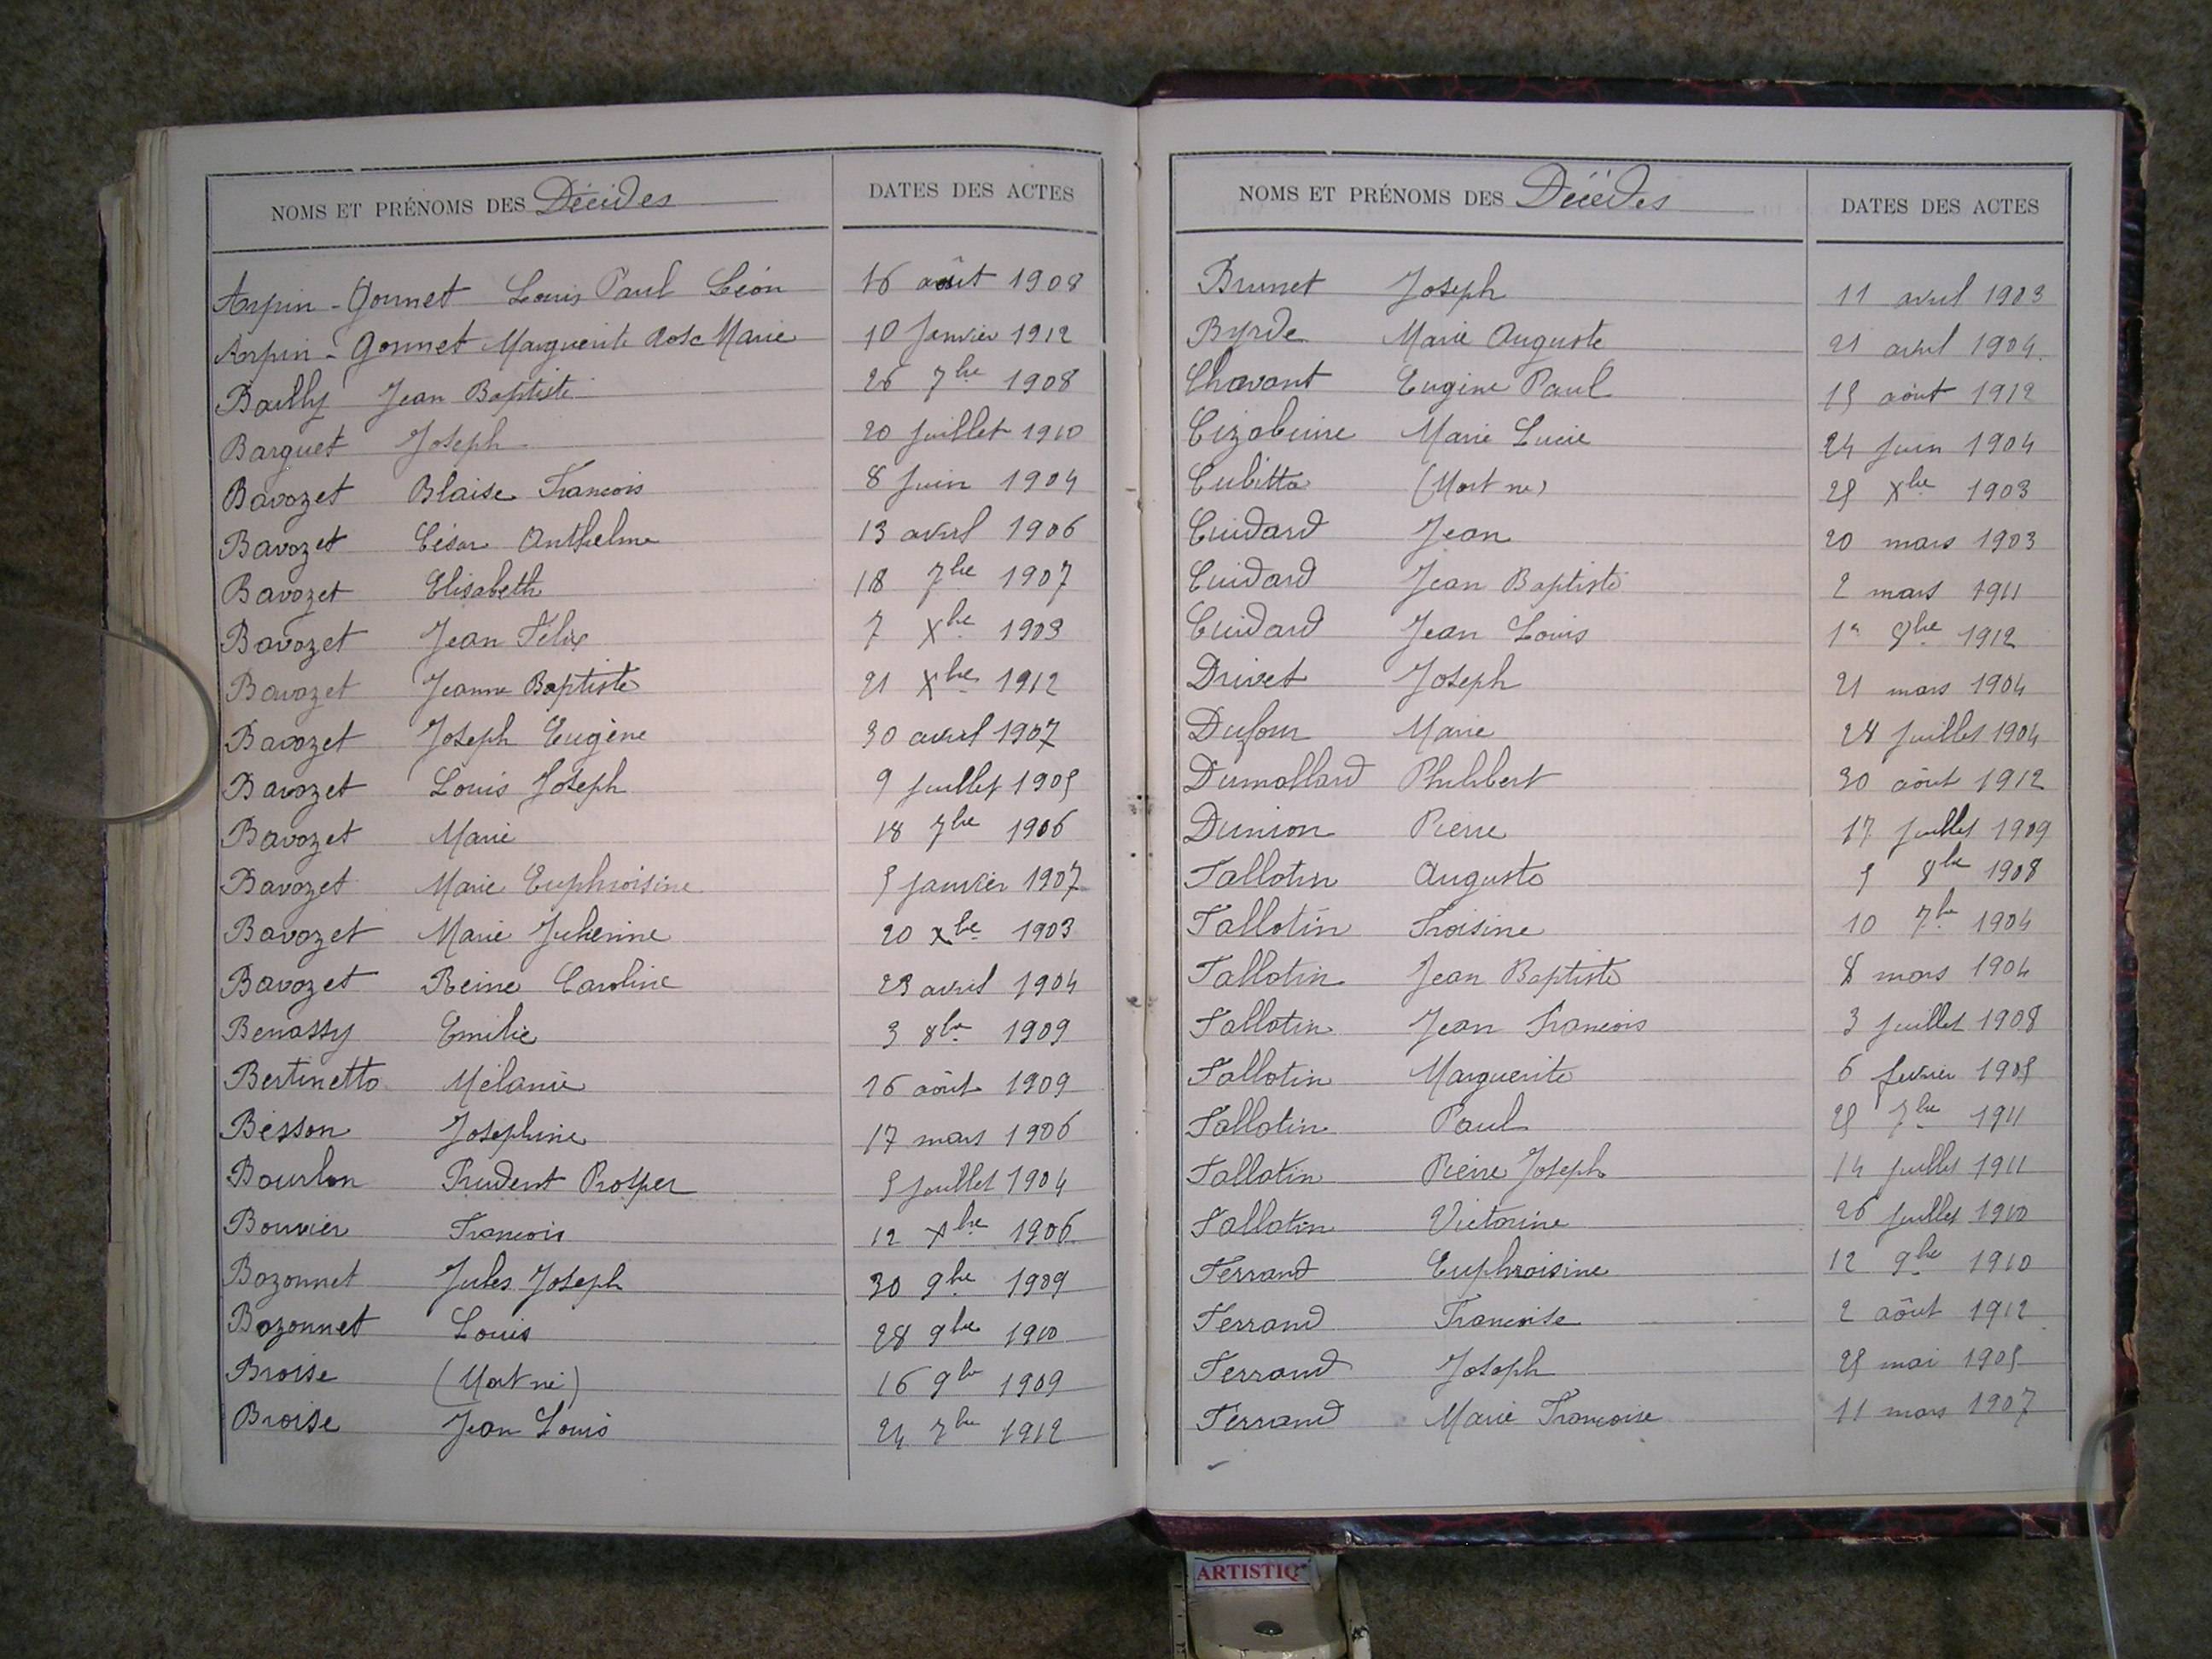 NOMS ET PRÉNOMS DES Décédés DATES DES ACTES
Arpin-Gonnet Louis Paul Léon 16 août 1908
Arpin-Gonnet Marguerite Rose Marie 10 Janvier 1912
Bailly Jean Baptiste 26 7bre 1908
Barquet Joseph 20 juillet 1910
Bavozet Blaise François 8 Juin 1904
Bavozet César Anthelme 13 avril 1906
Bavozet Elisabeth 18 7bre 1907
Bavozet Jean Félix 7 Xbre 1903
Bavozet Jeanne Baptiste 21 Xbre 1912
Bavozet Joseph Eugène 30 avril 1907
Bavozet Louis Joseph 9 juillet 1905
Bavozet Marie 18 7bre 1906
Bavozet Marie Euphroisine 5 janvier 1907
Bavozet Marie Julienne 20 Xbre 1903
Bavozet Reine Caroline 23 avril 1904
Benassy Emilie 3 8bre 1909
Bertinetto Mélanie 16 août 1909
Besson Joséphine 17 mars 1906
Bourbon Prudent Prosper 5 juillet 1904
Bouvier François 12 Xbre 1906
Bozonnet Jules Joseph 30 9bre 1909
Bozonnet Louis 28 9bre 1910
Broise (Mort né) 16 9bre 1909
Broise Jean Louis 24 7bre 1912
NOMS ET PRÉNOMS DES Décédés DATES DES ACTES
Brunet Joseph 11 avril 1903
Byrde Marie Auguste 21 avril 1904
Chavant Eugène Paul 15 août 1912
Cizabuire Marie Lucie 24 Juin 1904
Cubitta (Mort né) 25 Xbre 1903
Cuidard Jean 20 mars 1903
Cuidard Jean Baptiste 2 mars 1911
Cuidard Jean Louis 1er 9bre 1912
Drivet Joseph 21 mars 1904
Dufour Marie 28 Juillet 1904
Dumollard Philibert 30 août 1912
Dunion Pierre 17 juillet 1909
Fallotin Auguste 5 8bre 1908
Fallotin Froisine 10 7bre 1904
Fallotin Jean Baptiste 8 mars 1904
Fallotin Jean François 3 juillet 1908
Fallotin Marguerite 6 février 1905
Fallotin Paul 25 7bre 1911
Fallotin Pierre Joseph 14 juillet 1911
Fallotin Victorine 26 juillet 1910
Ferrand Euphroisine 12 9bre 1910
Ferrand Françoise 2 août 1912
Ferrand Joseph 25 mai 1905
Ferrand Marie Françoise 11 mars 1907
ARTISTIQ